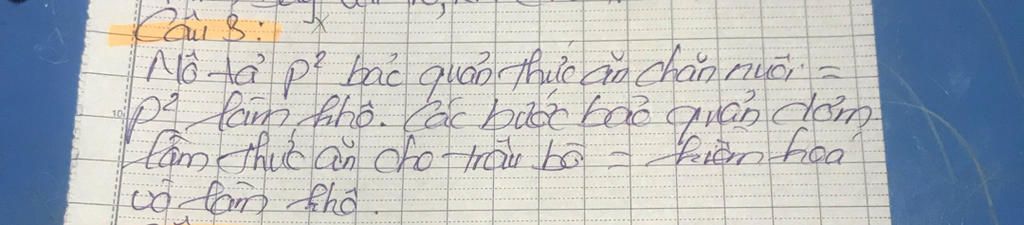 Câu 3:
Mô tả p² bảo quản thức ăn chăn nuôi =
p² làm khô. Các bước bảo quản rơm,
làm thức ăn cho trâu bò = kiềm hóa
và làm khô.